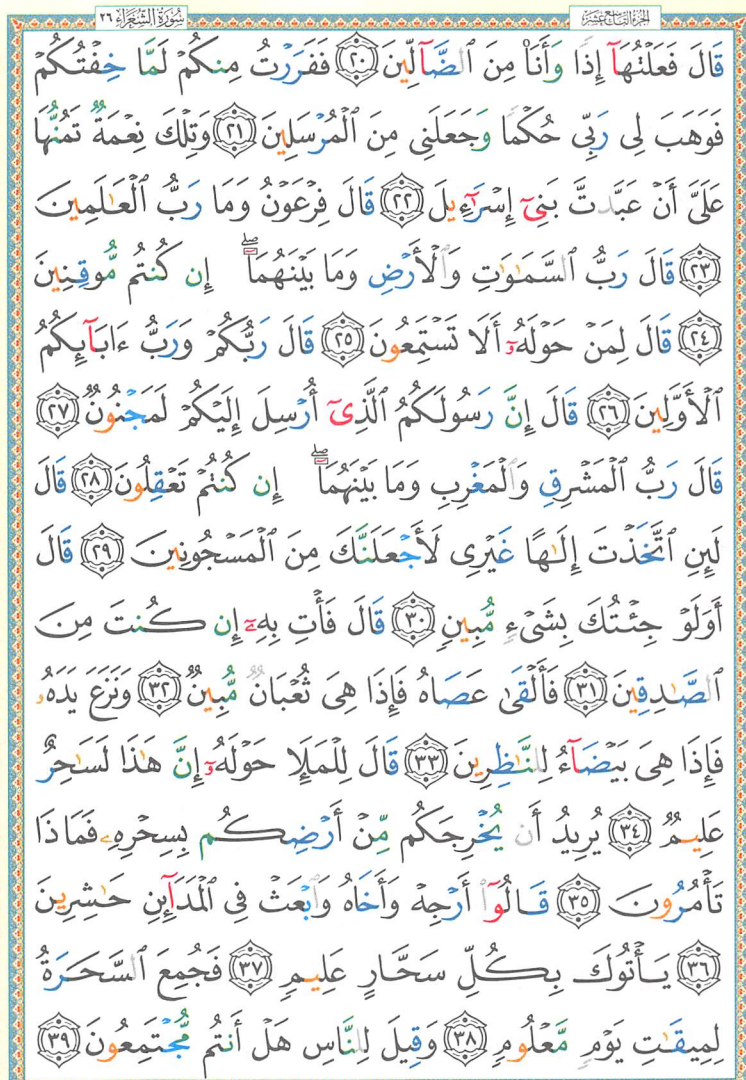 الجزء التاسع عشر
سُورَةُ الشُّعَرَاءِ ٢٦
قَالَ فَعَلْتُهَآ إِذًا وَأَنَا۠ مِنَ ٱلضَّآلِّينَ ٢٠ فَفَرَرْتُ مِنكُمْ لَمَّا خِفْتُكُمْ
فَوَهَبَ لِى رَبِّى حُكْمًا وَجَعَلَنِى مِنَ ٱلْمُرْسَلِينَ ٢١ وَتِلْكَ نِعْمَةٌ تَمُنُّهَا
عَلَىَّ أَنْ عَبَّدتَّ بَنِىٓ إِسْرَٰٓءِيلَ ٢٢ قَالَ فِرْعَوْنُ وَمَا رَبُّ ٱلْعَٰلَمِينَ
٢٣ قَالَ رَبُّ ٱلسَّمَٰوَٰتِ وَٱلْأَرْضِ وَمَا بَيْنَهُمَآ ۖ إِن كُنتُم مُّوقِنِينَ
٢٤ قَالَ لِمَنْ حَوْلَهُۥٓ أَلَا تَسْتَمِعُونَ ٢٥ قَالَ رَبُّكُمْ وَرَبُّ ءَابَآئِكُمُ
ٱلْأَوَّلِينَ ٢٦ قَالَ إِنَّ رَسُولَكُمُ ٱلَّذِىٓ أُرْسِلَ إِلَيْكُمْ لَمَجْنُونٌ ٢٧
قَالَ رَبُّ ٱلْمَشْرِقِ وَٱلْمَغْرِبِ وَمَا بَيْنَهُمَآ ۖ إِن كُنتُمْ تَعْقِلُونَ ٢٨ قَالَ
لَئِنِ ٱتَّخَذْتَ إِلَٰهًا غَيْرِى لَأَجْعَلَنَّكَ مِنَ ٱلْمَسْجُونِينَ ٢٩ قَالَ
أَوَلَوْ جِئْتُكَ بِشَىْءٍ مُّبِينٍ ٣٠ قَالَ فَأْتِ بِهِۦٓ إِن كُنتَ مِنَ
ٱلصَّٰدِقِينَ ٣١ فَأَلْقَىٰ عَصَاهُ فَإِذَا هِىَ ثُعْبَانٌ مُّبِينٌ ٣٢ وَنَزَعَ يَدَهُۥ
فَإِذَا هِىَ بَيْضَآءُ لِلنَّٰظِرِينَ ٣٣ قَالَ لِلْمَلَإِ حَوْلَهُۥٓ إِنَّ هَٰذَا لَسَٰحِرٌ
عَلِيمٌ ٣٤ يُرِيدُ أَن يُخْرِجَكُم مِّنْ أَرْضِكُم بِسِحْرِهِۦ فَمَاذَا
تَأْمُرُونَ ٣٥ قَالُوٓا۟ أَرْجِهْ وَأَخَاهُ وَٱبْعَثْ فِى ٱلْمَدَآئِنِ حَٰشِرِينَ
٣٦ يَأْتُوكَ بِكُلِّ سَحَّارٍ عَلِيمٍ ٣٧ فَجُمِعَ ٱلسَّحَرَةُ
لِمِيقَٰتِ يَوْمٍ مَّعْلُومٍ ٣٨ وَقِيلَ لِلنَّاسِ هَلْ أَنتُم مُّجْتَمِعُونَ ٣٩